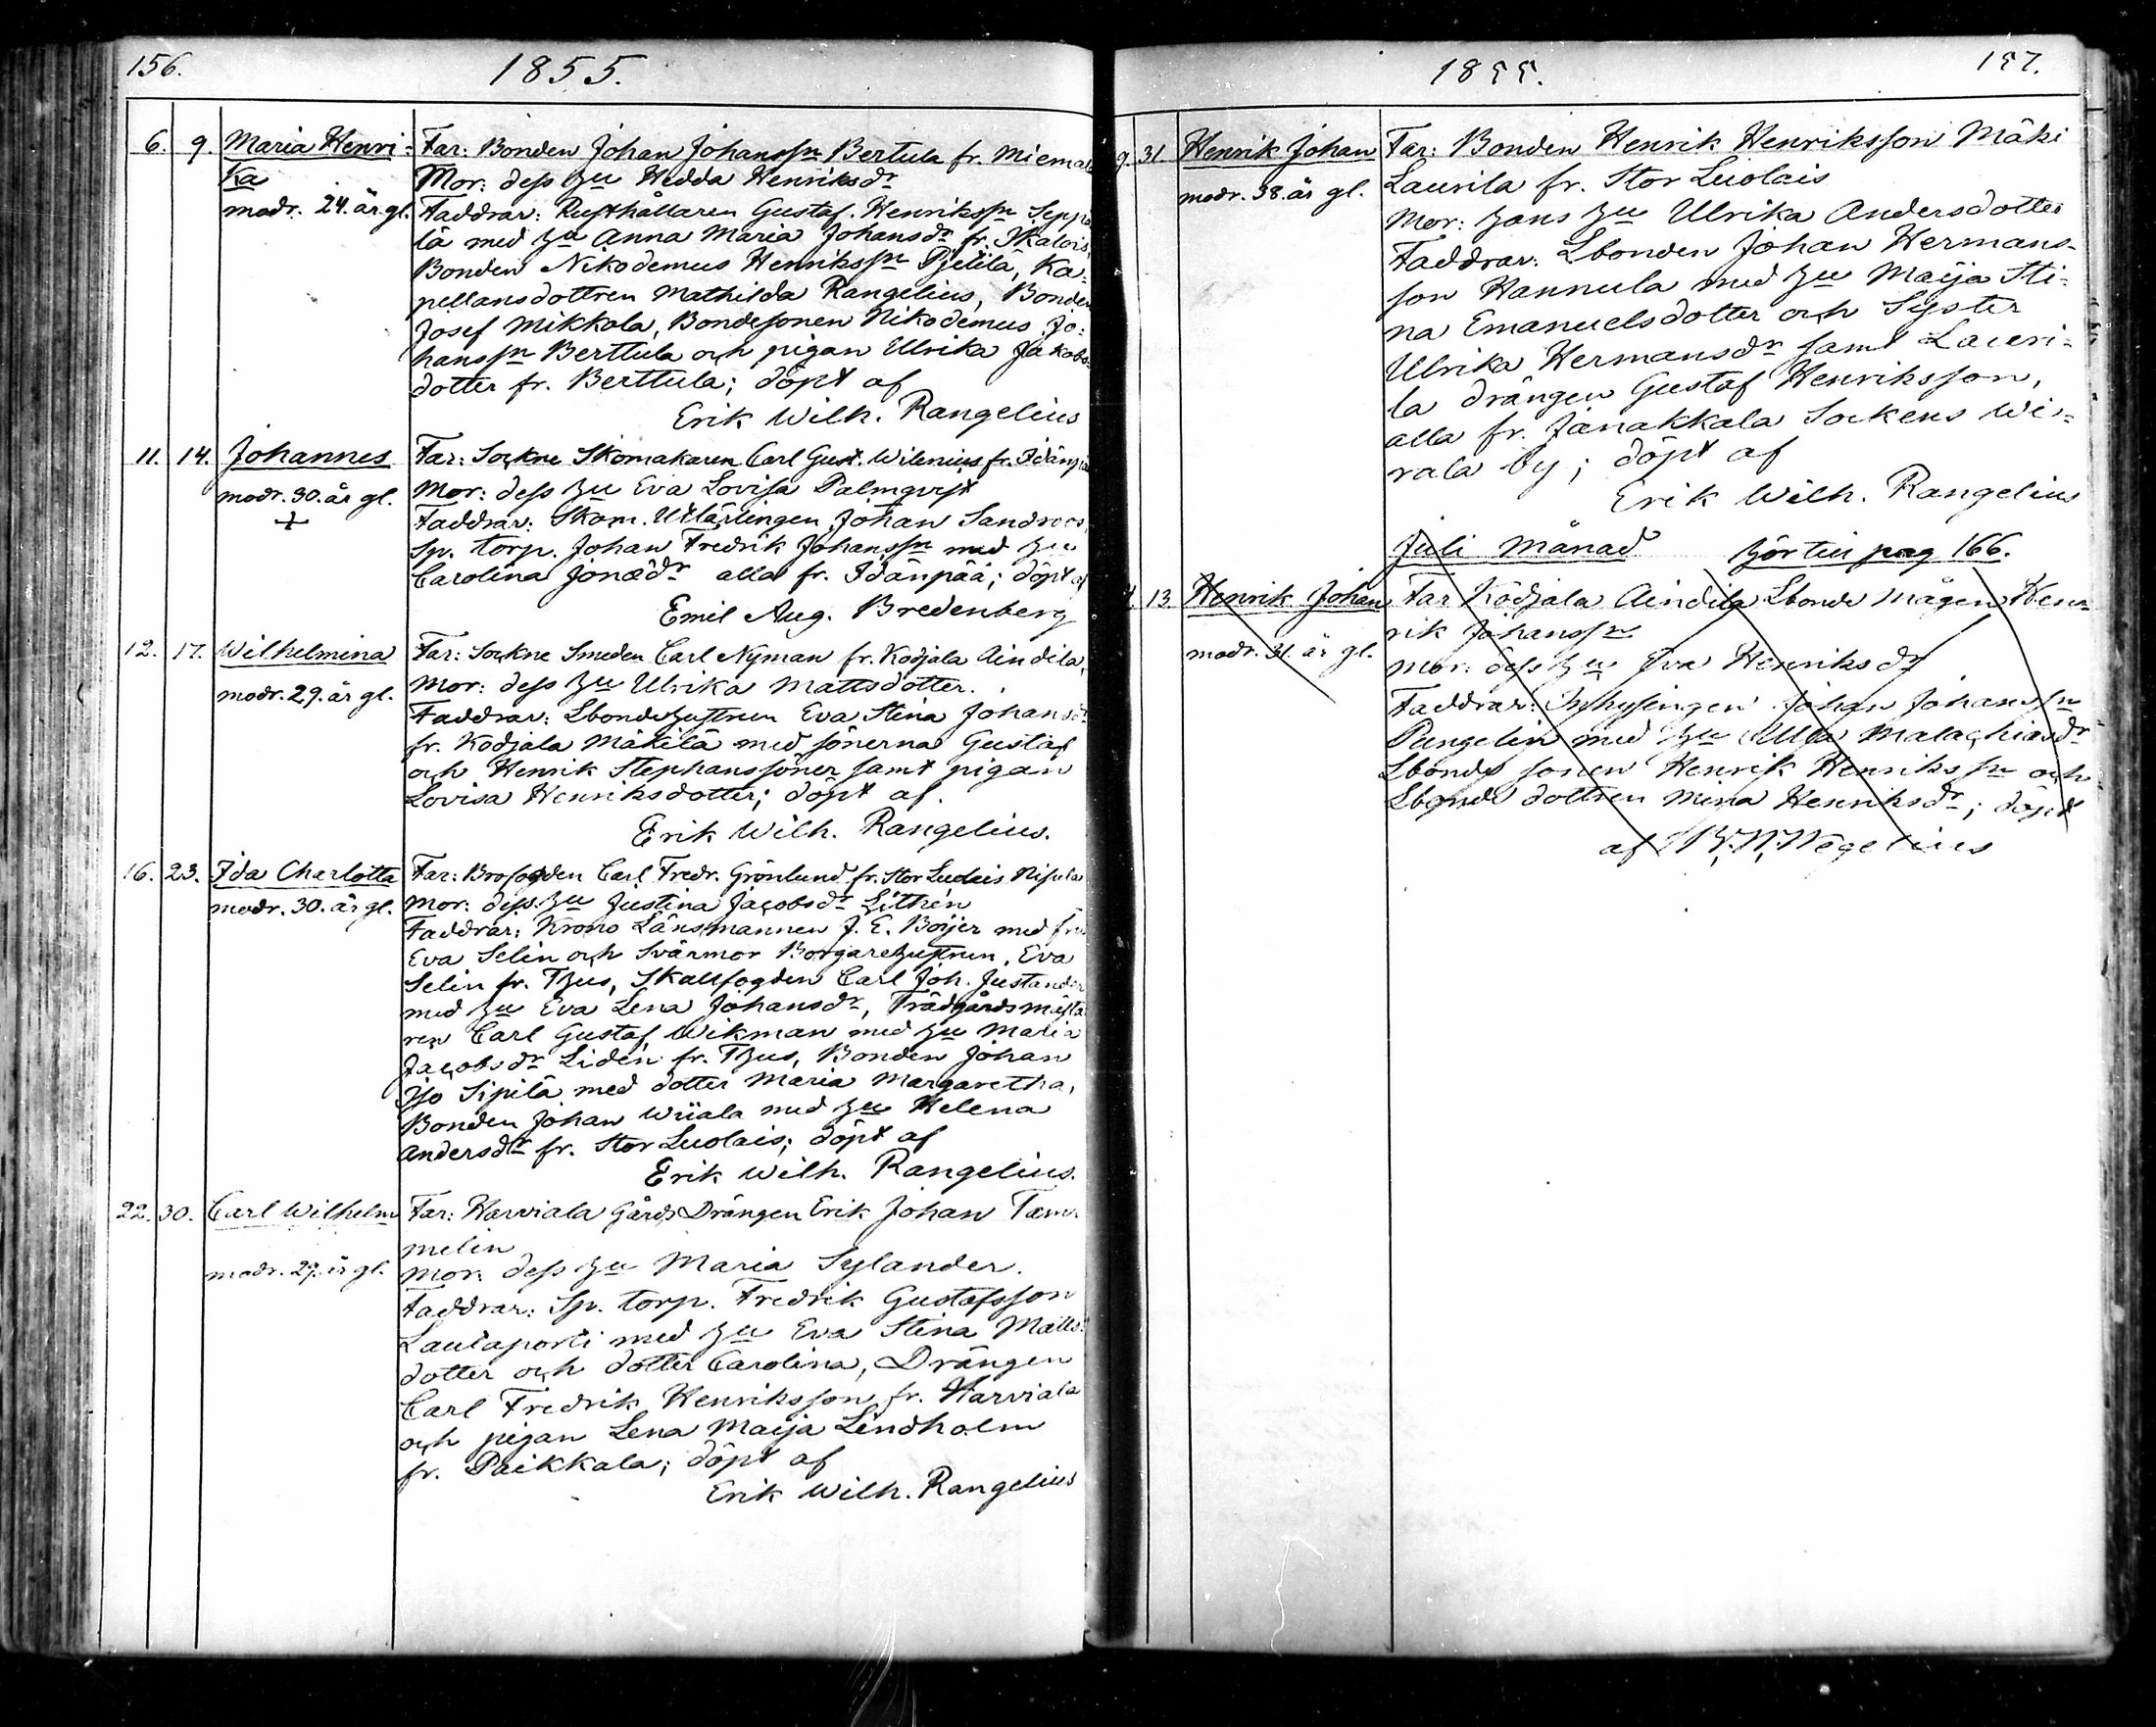 156.
1855.
6. 9. Maria Henri- Far: Bonden Johan Johanssn Bertula fr. Miema
ka Mor: dess hu Hedda Henriksdr
modr. 24. år gl. Faddrar: Rusthållaren Gustaf Henrikssn Seppä
lä med hu Anna Maria Johansdr fr. Ikalois,
Bonden Nikodemus Henrikssn Pjetilä, Ka-
pellansdottren Mathilda Rangelius, Bonden
Josef Mikkola, Bondesonen Nikodemus Jo-
hanssn Berttula och pigan Ulrika Jakobs-
dotter fr. Berttula; döpt af
Erik Wilh. Rangelius
11. 14. Johannes Far: Sockne Skomakaren Carl Gust. Wilenius fr. Idänpä
modr. 30. år gl. Mor: dess hu Eva Lovisa Palmqvist
+ Faddrar: Skom. Utlärlingen Johan Sandroos,
Sp. torp. Johan Fredrik Johanssn med hu
Carolina Jonædr alla fr. Idänpää; döpt af
Emil Aug. Bredenberg
12. 17. Wilhelmina Far: Sockne Smeden Carl Nyman fr. Kodjala Aindila,
modr. 29. år gl. Mor: dess hu Ulrika Mattsdotter.
Faddrar: Lbondehustrun Eva Stina Johansdr
fr. Kodjala Mäkilä med sönerna Gustaf
och Henrik Stephanssöner samt pigan
Lovisa Henriksdotter; döpt af
Erik Wilh. Rangelius.
16. 23. Ida Charlotta Far: Brofogden Carl Fredr. Grönlund fr. Stor Luolais Nisula
modr. 30. år gl. Mor: dess hu Justina Jacobsdr Lithén
Faddrar: Krono Länsmannen J. E. Boijer med fru
Eva Selin och Svärmor Borgarehustrun, Eva
Selin fr. Thus, Skallfogden Carl Joh. Justander
med hu Eva Lena Johansdr, Trädgårdsmästa
ren Carl Gustaf Wikman med hu Maria
Jacobsdr Lidén fr. Thus, Bonden Johan
Iso Sipilä med dotter Maria Margaretha,
Bonden Johan Wiiala med hu Helena
Andersdr fr. Stor Luolais; döpt af
Erik Wilh. Rangelius.
22. 30. Carl Wilhelm Far: Harviala Gårds Drängen Erik Johan Tam-
melin
modr. 29. år gl. Mor: dess hu Maria Sylander.
Faddrar: Sp. torp. Fredrik Gustafsson
Lautaporti med hu Eva Stina Matts-
dotter och dotter Carolina, Drängen
Carl Fredrik Henriksson fr. Harviala
och pigan Lena Maija Lindholm
fr. Paikkala; döpt af
Erik Wilh. Rangelius
1855.
157.
9. 31. Henrik Johan Far: Bonden Henrik Henriksson Mäki
modr. 38. år gl. Laurila fr. Stor Luolais
Mor: hans hu Ulrika Andersdotter
Faddrar: Lbonden Johan Hermans-
son Hannula med hu Maija Sti-
na Emanuelsdotter och Syster
Ulrika Hermansdr samt Lauri-
la drängen Gustaf Henriksson,
alla fr. Janakkala Sockens Wi-
rala by; döpt af
Erik Wilh. Rangelius
Juli Månad hör till pag 166.
13. Henrik Johan Far Kodjala Aindila Lbonde Mågen Hen-
rik Johanssn
modr. 31. år gl. Mor: dess hu Eva Henriksdr
Faddrar: Inhysingen Johan Johanssn
Pungelin med hu Ulla Malachiasdr
Lbonde sonen Henrik Henrikssn och
Lbonde dottren Mina Henriksdr; döpt
af Wegelius